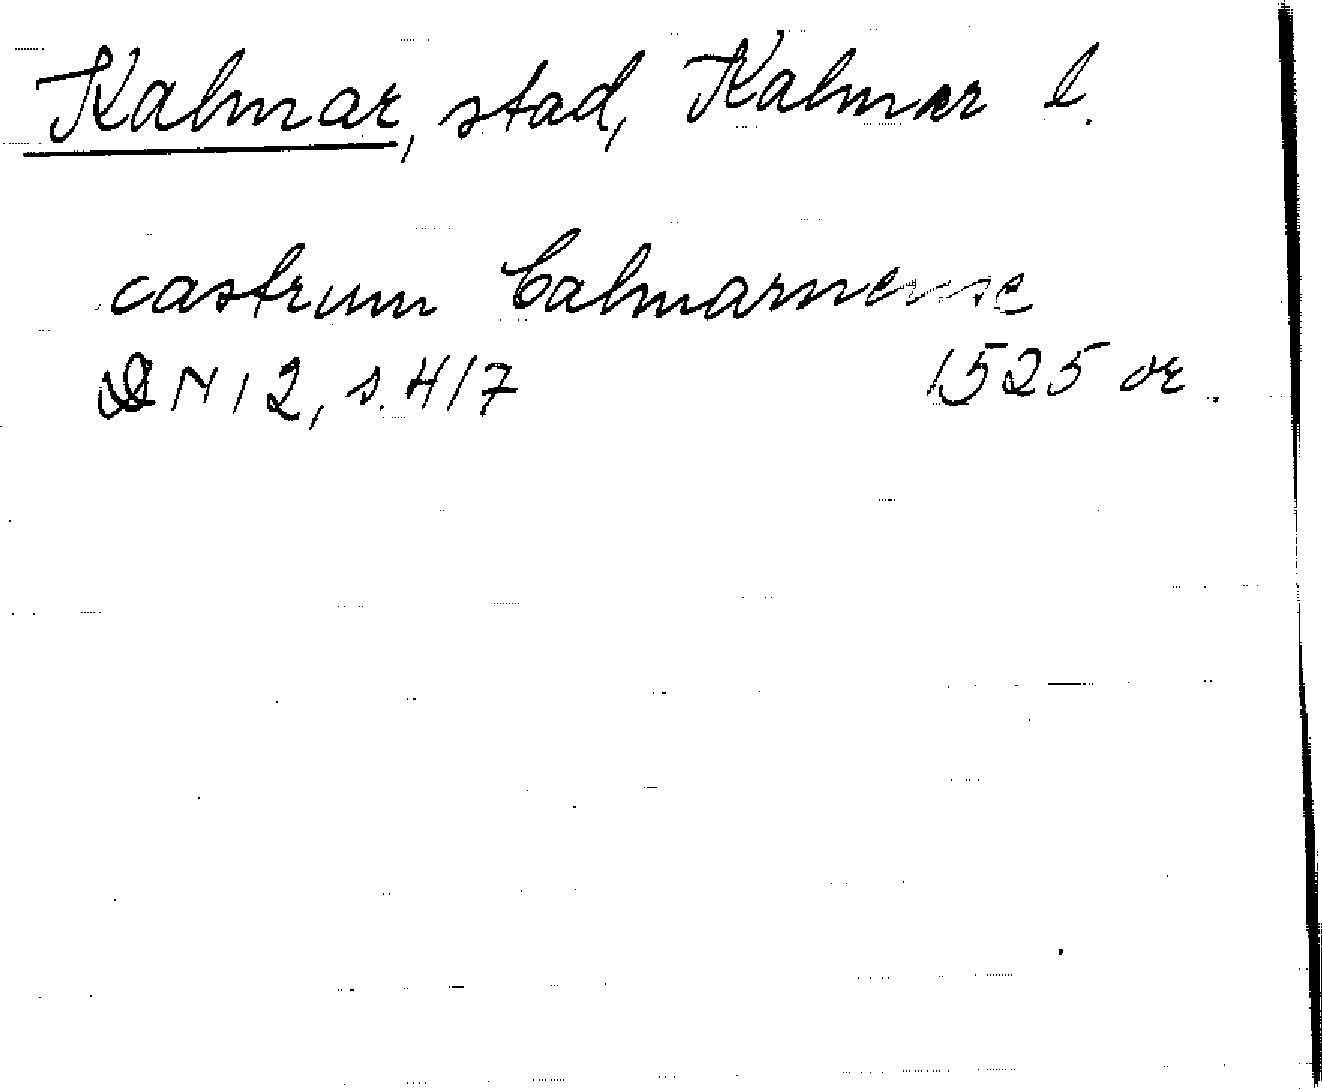 Kalmar, stad, Kalmar l.
castrum Calmarnense
DN 12, s. 417 1525 or.